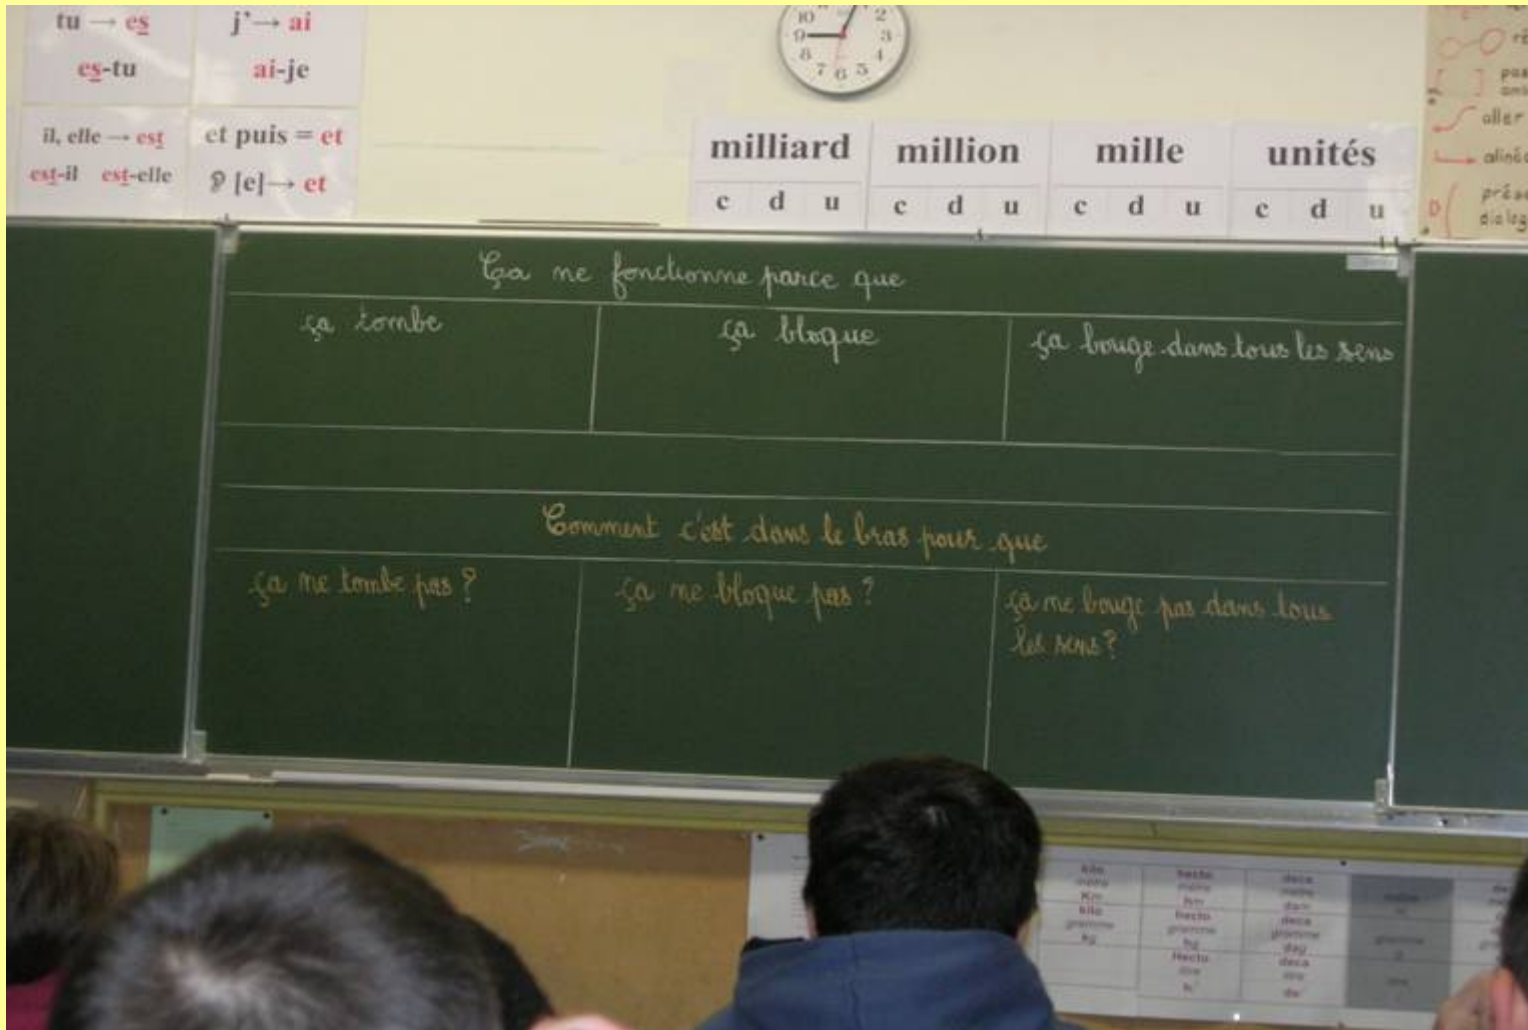 tu → es
es-tu
j'→ ai
ai-je
il, elle → est
est-il est-elle
et puis = et
[e]→ et
10 2
9 3
8 4
7 6 5
milliard million mille unités
c d u c d u c d u c d u
aller
Ça ne fonctionne parce que
ça tombe
ça bloque
ça bouge dans tous les sens
Comment c'est dans le bras pour que
ça ne tombe pas ?
ça ne bloque pas ?
ça ne bouge pas dans tous
les sens ?
kilo hecto deca
Km hm dam
kilo hecto deca
gramme gramme gramme
kg hg dag
Hecto deca